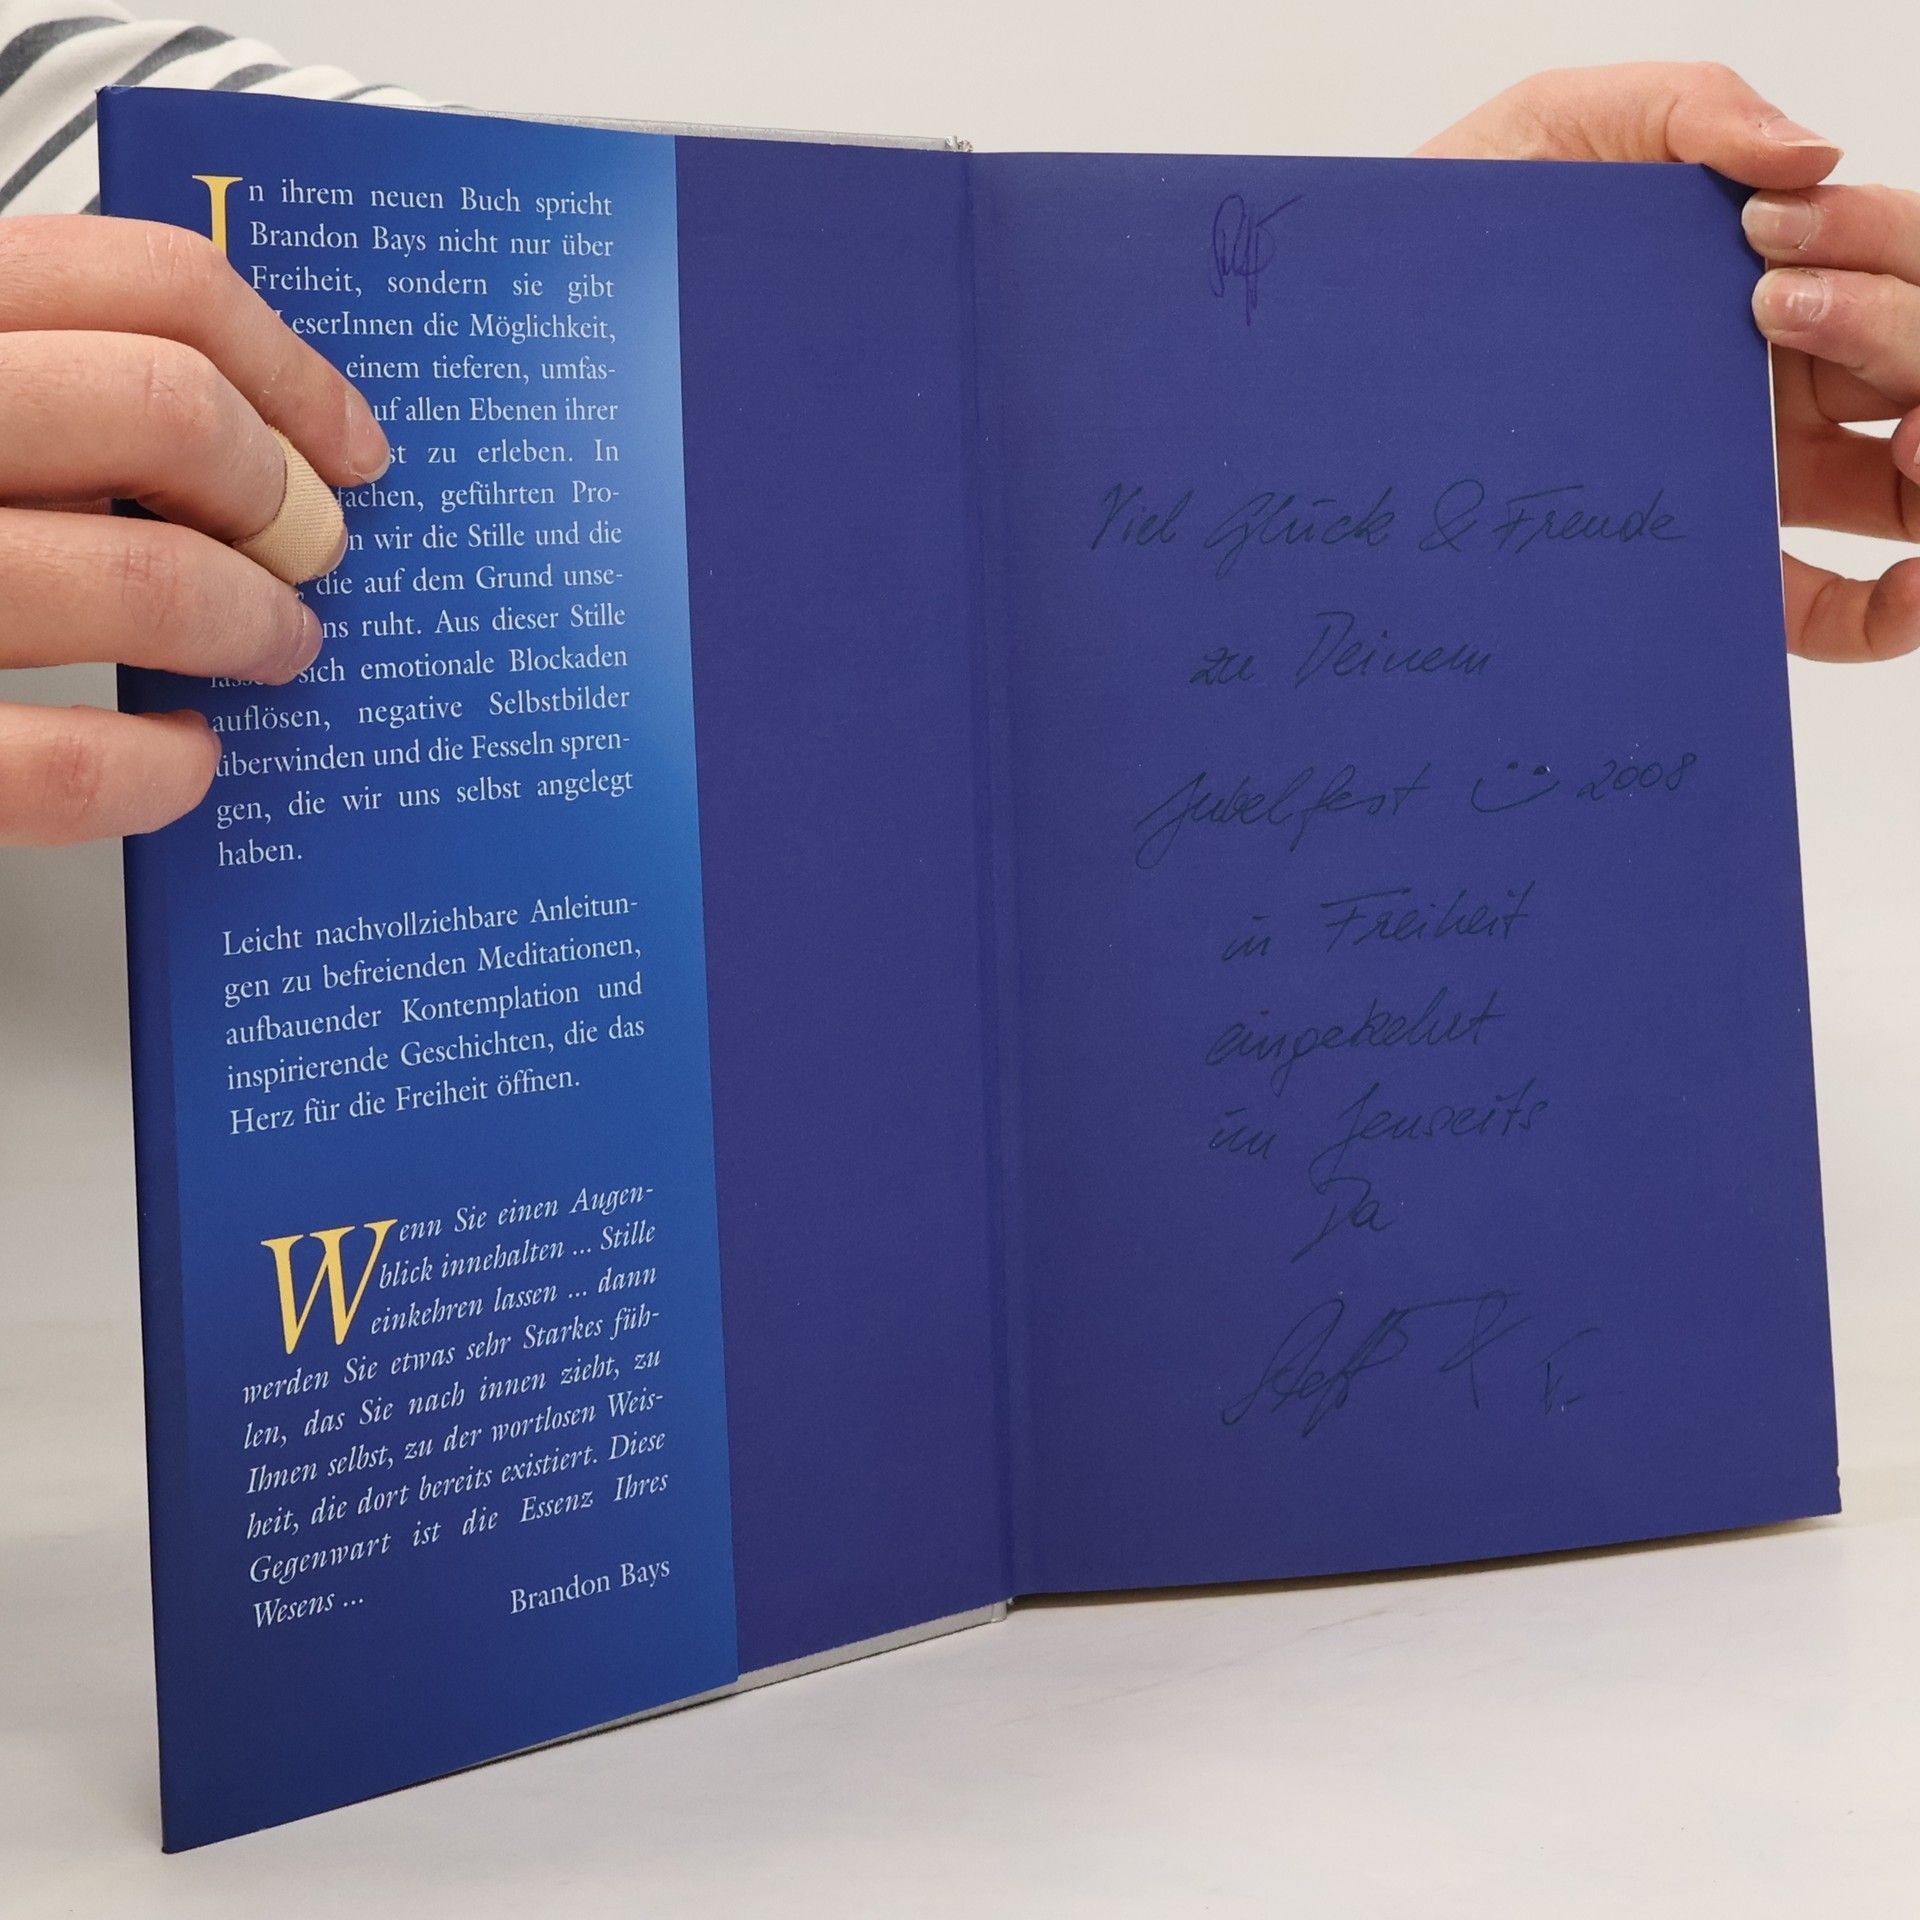 In ihrem neuen Buch spricht
Brandon Bays nicht nur über
Freiheit, sondern sie gibt
LeserInnen die Möglichkeit,
einem tieferen, umfas-
uf allen Ebenen ihrer
st zu erleben. In
fachen, geführten Pro-
n wir die Stille und die
die auf dem Grund unse-
ns ruht. Aus dieser Stille
sich emotionale Blockaden
auflösen, negative Selbstbilder
überwinden und die Fesseln spren-
gen, die wir uns selbst angelegt
haben.
Leicht nachvollziehbare Anleitun-
gen zu befreienden Meditationen,
aufbauender Kontemplation und
inspirierende Geschichten, die das
Herz für die Freiheit öffnen.
Wenn Sie einen Augen-
blick innehalten ... Stille
einkehren lassen ... dann
werden Sie etwas sehr Starkes füh-
len, das Sie nach innen zieht, zu
Ihnen selbst, zu der wortlosen Weis-
heit, die dort bereits existiert. Diese
Gegenwart ist die Essenz Ihres
Wesens ...
Brandon Bays
Viel Glück & Freude
zu Deinem
Jubelfest 2008
in Freiheit
eingekehrt
im Jenseits
Da